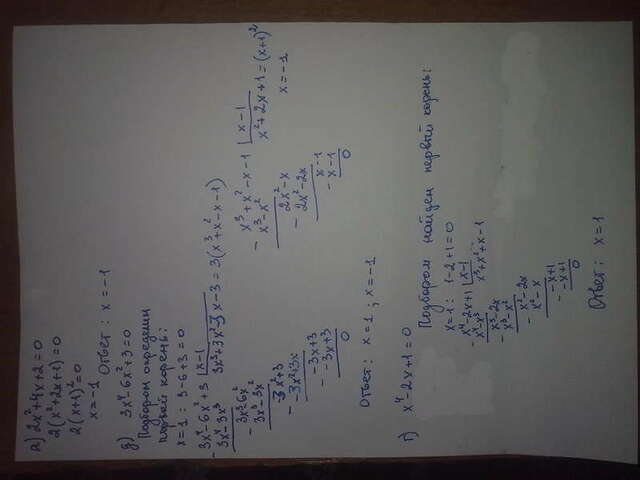 а) 2x²+4x+2=0
2(x²+2x+1)=0
2(x+1)²=0
x=-1 Ответ: x=-1
g) 3x⁴-6x²+3=0
Подбором определим
первый корень:
x=1: 3-6+3=0
- 3x⁴-6x²+3 | x-1
3x⁴-3x³ 3x³+3x²-3x-3=3(x³+x²-x-1)
- 3x³-6x²
3x³-3x²
- -3x²+3
-3x²+3x
- -3x+3
-3x+3
0
- x³+x²-x-1 | x-1
x³-x² x²+2x+1=(x+1)²
- 2x²-x x=-1
2x²-2x
- x-1
x-1
0
Ответ: x=1; x=-1
г) x⁴-2x+1=0
Подбором найден первый корень:
x=1: 1-2+1=0
- x⁴-2x+1 | x-1
x⁴-x³ x³+x²+x-1
- x³-2x
x³-x²
- x²-2x
x²-x
- -x+1
-x+1
0
Ответ: x=1